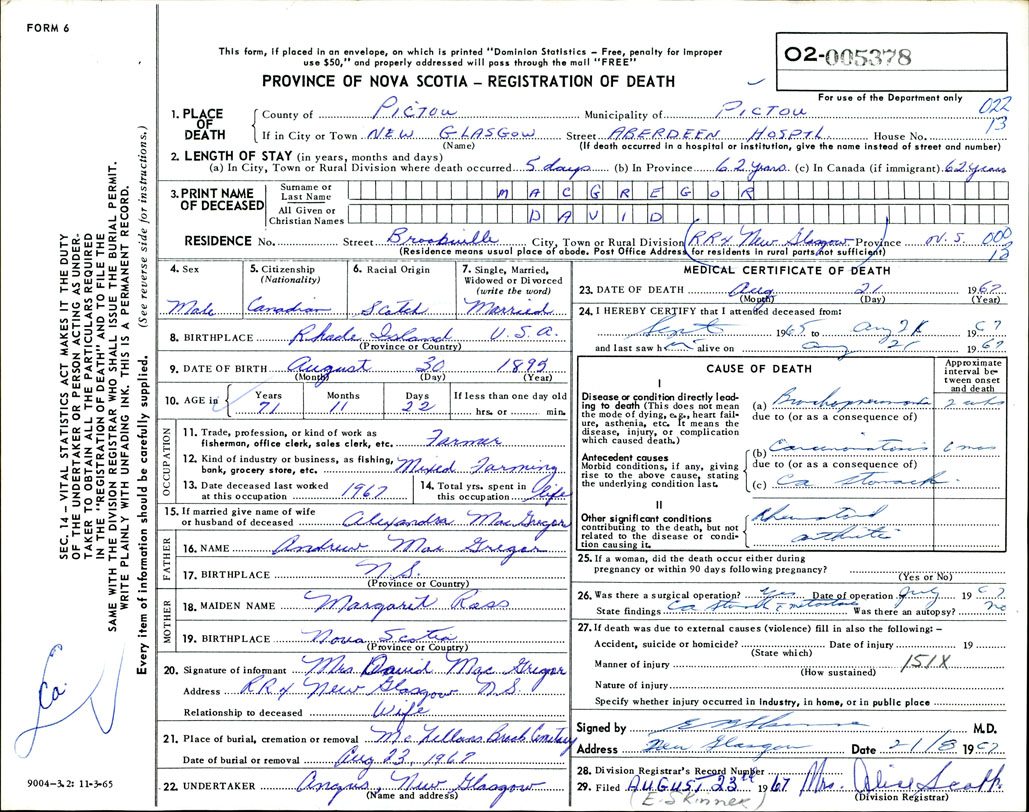 FORM 6
This form, if placed in an envelope, on which is printed "Dominion Statistics – Free, penalty for improper
use $50," and properly addressed will pass through the mail "FREE"
PROVINCE OF NOVA SCOTIA – REGISTRATION OF DEATH
O2-005378
For use of the Department only
022
13
1. PLACE OF DEATH
County of PICTOU Municipality of PICTOU
If in City or Town NEW GLASGOW Street ABERDEEN HOSPTL House No.
(Name) (If death occurred in a hospital or institution, give the name instead of street and number)
2. LENGTH OF STAY (in years, months and days)
(a) In City, Town or Rural Division where death occurred 5 days (b) In Province 62 years. (c) In Canada (if immigrant) 62 years
3. PRINT NAME OF DECEASED
Surname or Last Name MACGREGOR
All Given or Christian Names DAVID
RESIDENCE No. Street Brookville City, Town or Rural Division (RRx New Glasgow) Province N.S. 000
(Residence means usual place of abode. Post Office Address for residents in rural parts not sufficient) 12
4. Sex
Male
5. Citizenship
(Nationality)
Canadian
6. Racial Origin
Scotch
7. Single, Married,
Widowed or Divorced
(write the word)
Married
8. BIRTHPLACE Rhade Island U.S.A.
(Province or Country)
9. DATE OF BIRTH August 30 1895
(Month) (Day) (Year)
10. AGE in Years Months Days If less than one day old
71 11 22 hrs. or min.
OCCUPATION
11. Trade, profession, or kind of work as
fisherman, office clerk, sales clerk, etc. Farmer
12. Kind of industry or business, as fishing,
bank, grocery store, etc. Mixed Farming
13. Date deceased last worked
at this occupation 1967
14. Total yrs. spent in
this occupation life
15. If married give name of wife
or husband of deceased Alexandra MacGregor
FATHER
16. NAME Andrew Mac Gregor
17. BIRTHPLACE N.S.
(Province or Country)
MOTHER
18. MAIDEN NAME Margaret Ross
19. BIRTHPLACE Nova Scotia
(Province or Country)
20. Signature of informant Mrs. David Mac Gregor
Address RRx New Glasgow N.S.
Relationship to deceased Wife
21. Place of burial, cremation or removal McLellans Brook Cemetery
Date of burial or removal Aug 23, 1967
22. UNDERTAKER Angus, New Glasgow
(Name and address)
MEDICAL CERTIFICATE OF DEATH
23. DATE OF DEATH Aug 21 1967
(Month) (Day) (Year)
24. I HEREBY CERTIFY that I attended deceased from:
Sept 1965 to Aug 21 1967
and last saw him alive on Aug 21 1967
CAUSE OF DEATH
Approximate
interval be-
tween onset
and death
I
Disease or condition directly lead-
ing to death (This does not mean
the mode of dying, e.g., heart fail-
ure, asthenia, etc. It means the
disease, injury, or complication
which caused death.)
(a) Bronchopneumonia 2 wks
due to (or as a consequence of)
Antecedent causes
Morbid conditions, if any, giving
rise to the above cause, stating
the underlying condition last.
(b) Carcinomatosis 6 mos
due to (or as a consequence of)
(c) Ca stomach
II
Other significant conditions
contributing to the death, but not
related to the disease or condi-
tion causing it.
Rheumatoid
arthritis
25. If a woman, did the death occur either during
pregnancy or within 90 days following pregnancy?
(Yes or No)
26. Was there a surgical operation? Yes Date of operation July 1967
State findings Ca Stomach Was there an autopsy? no
27. If death was due to external causes (violence) fill in also the following: –
Accident, suicide or homicide? Date of injury 19
(State which)
Manner of injury 151X
(How sustained)
Nature of injury
Specify whether injury occurred in industry, in home, or in public place
Signed by M.D.
Address New Glasgow Date 21/8 1967
28. Division Registrar's Record Number
29. Filed AUGUST 23rd 1967 Mrs. Alice Scott
(E. Skinner) (Division Registrar)
SEC. 14 – VITAL STATISTICS ACT MAKES IT THE DUTY
OF THE UNDERTAKER OR PERSON ACTING AS UNDER-
TAKER TO OBTAIN ALL THE PARTICULARS REQUIRED
IN THE "REGISTRATION OF DEATH" AND TO FILE THE
SAME WITH THE DIVISION REGISTRAR WHO SHALL ISSUE THE BURIAL PERMIT.
WRITE PLAINLY WITH UNFADING INK. THIS IS A PERMANENT RECORD.
Every item of information should be carefully supplied. (See reverse side for instructions.)
Ca.
9004-3.2: 11-3-65